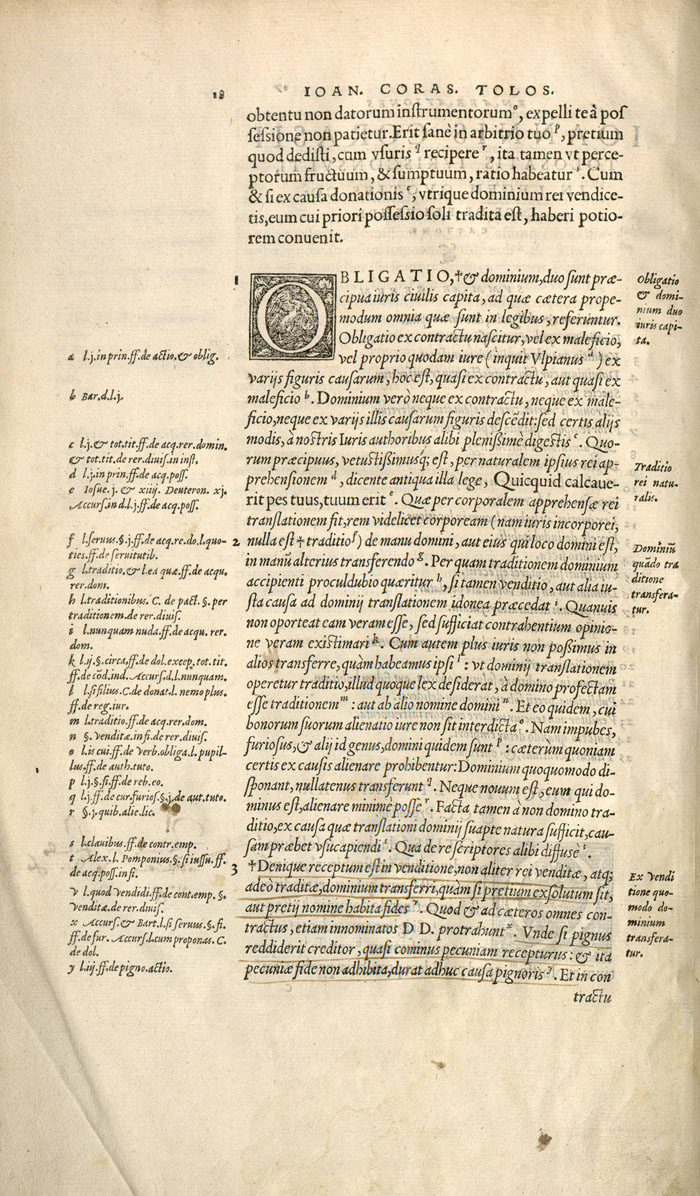 18
IOAN. CORAS. TOLOS.
obtentu non datorum instrumentorum o, expelli te à pos
sessione non patietur. Erit sanè in arbitrio tuo p, pretium
quod dedisti, cum vsuris q recipere r, ita tamen vt perce-
ptorum fructuum, & sumptuum, ratio habeatur s. Cum
& si ex causa donationis t, vtrique dominium rei vendice-
tis, eum cui priori possessio soli tradita est, haberi potio-
rem conuenit.
1
OBLIGATIO, †& dominium, duo sunt præ-
cipua iuris ciuilis capita, ad quæ cætera prope-
modum omnia quæ sunt in legibus, referuntur.
Obligatio ex contractu nascitur, vel ex maleficio,
vel proprio quodam iure (inquit Vlpianus a) ex
varijs figuris causarum, hoc est, quasi ex contractu, aut quasi ex
maleficio b. Dominium verò neque ex contractu, neque ex male-
ficio, neque ex varijs illis causarum figuris descẽdit: sed certis alijs
modis, à nostris Iuris authoribus alibi plenißime digestis c. Quo-
rum præcipuus, vetustißimusq; est, per naturalem ipsius rei ap-
prehensionem d, dicente antiqua illa lege, Quicquid calcaue-
rit pes tuus, tuum erit e. Quæ per corporalem apprehensæ rei
translationem fit, rem videlicet corpoream (nam iuris incorporei,
2
nulla est † traditio f) de manu domini, aut eius qui loco domini est,
in manũ alterius transferendo g. Per quam traditionem dominium
accipienti proculdubio quæritur h, si tamen venditio, aut alia iu-
sta causa ad dominij translationem idonea præcedat i. Quanuis
non oporteat eam veram esse, sed sufficiat contrahentium opinio-
ne veram existimari k. Cum autem plus iuris non poßimus in
alios transferre, quàm habeamus ipsi l: vt dominij translationem
operetur traditio, illud quoque lex desiderat, à domino profectam
esse traditionem m: aut ab alio nomine domini n. Et eo quidem, cui
bonorum suorum alienatio iure non sit interdicta o. Nam impubes,
furiosus, & alij id genus, domini quidem sunt p: cæterùm quoniam
certis ex causis alienare prohibentur: Dominium quoquomodo di-
sponant, nullatenus transferunt q. Neque nouum est, eum qui do-
minus est, alienare minimè posse r. Facta tamen à non domino tra-
ditio, ex causa quæ translationi dominij suapte natura sufficit, cau-
sam præbet vsucapiendi s. Qua de re scriptores alibi diffusè t.
3
†Denique receptum est in venditione, non aliter rei venditæ, atq;
adeò traditæ, dominium transferri, quàm si pretium exsolutum sit,
aut pretij nomine habita fides v. Quod & ad cæteros omnes con-
tractus, etiam innominatos D D. protrahunt x. Vnde si pignus
reddiderit creditor, quasi cominus pecuniam recepturus: & ita
pecuniæ fide non adhibita, durat adhuc causa pignoris y. Et in con
tractu
a l.j. in prin. ff. de actio. & oblig.
b Bar. d. l. j.
c l.j. & tot. tit. ff. de acq. rer. domin.
& tot. tit. de rer. diuis. in inst.
d l.j. in prin. ff. de acq. poss.
e Iosue. j. & xiiij. Deuteron. xj.
Accurs. in d. l. j. ff. de acq. poss.
f l. seruius. §. j. ff. de acq. re. do. l. quo-
ties. ff. de seruitutib.
g l. traditio. & l. ea quæ. ff. de acqu.
rer. dom.
h l. traditionibus. C. de pact. §. per
traditionem. de rer. diuis.
i l. nunquam nuda. ff. de acqu. rer.
dom.
k l. ij. §. circa. ff. de dol. excep. tot. tit.
ff. de cõd. ind. Accurs. d. l. nunquam.
l l. si filius. C. de donat. l. nemo plus.
ff. de reg. iur.
m l. traditio. ff. de acq. rer. dom.
n §. venditæ. in fi. de rer. diuis.
o l. is cui. ff. de verb. obliga. l. pupil-
lus. ff. de auth. tuto.
p l. j. §. si. ff. de reb. eo.
q l. j. ff. de cur. furios. §. j. de aut. tuto.
r §. j. quib. alie. lic.
s l. clauibus. ff. de contr. emp.
t Alex. l. Pomponius. §. si iussu. ff.
de acq. poss. in fi.
v l. quod vendidi. ff. de cont. emp. §.
venditæ. de rer. diuis.
x Accurs. & Bart. l. si seruus. §. fi.
ff. de fur. Accurs. l. cum proponas. C.
de dol.
y l. iij. ff. de pigno. actio.
Obligatio
& domi-
nium duo
iuris capi-
ta.
Traditio
rei natu-
ralis.
Dominiũ
quãdo tra
ditione
transfera-
tur.
Ex vendi
tione quo-
modo do-
minium
transfera-
tur.